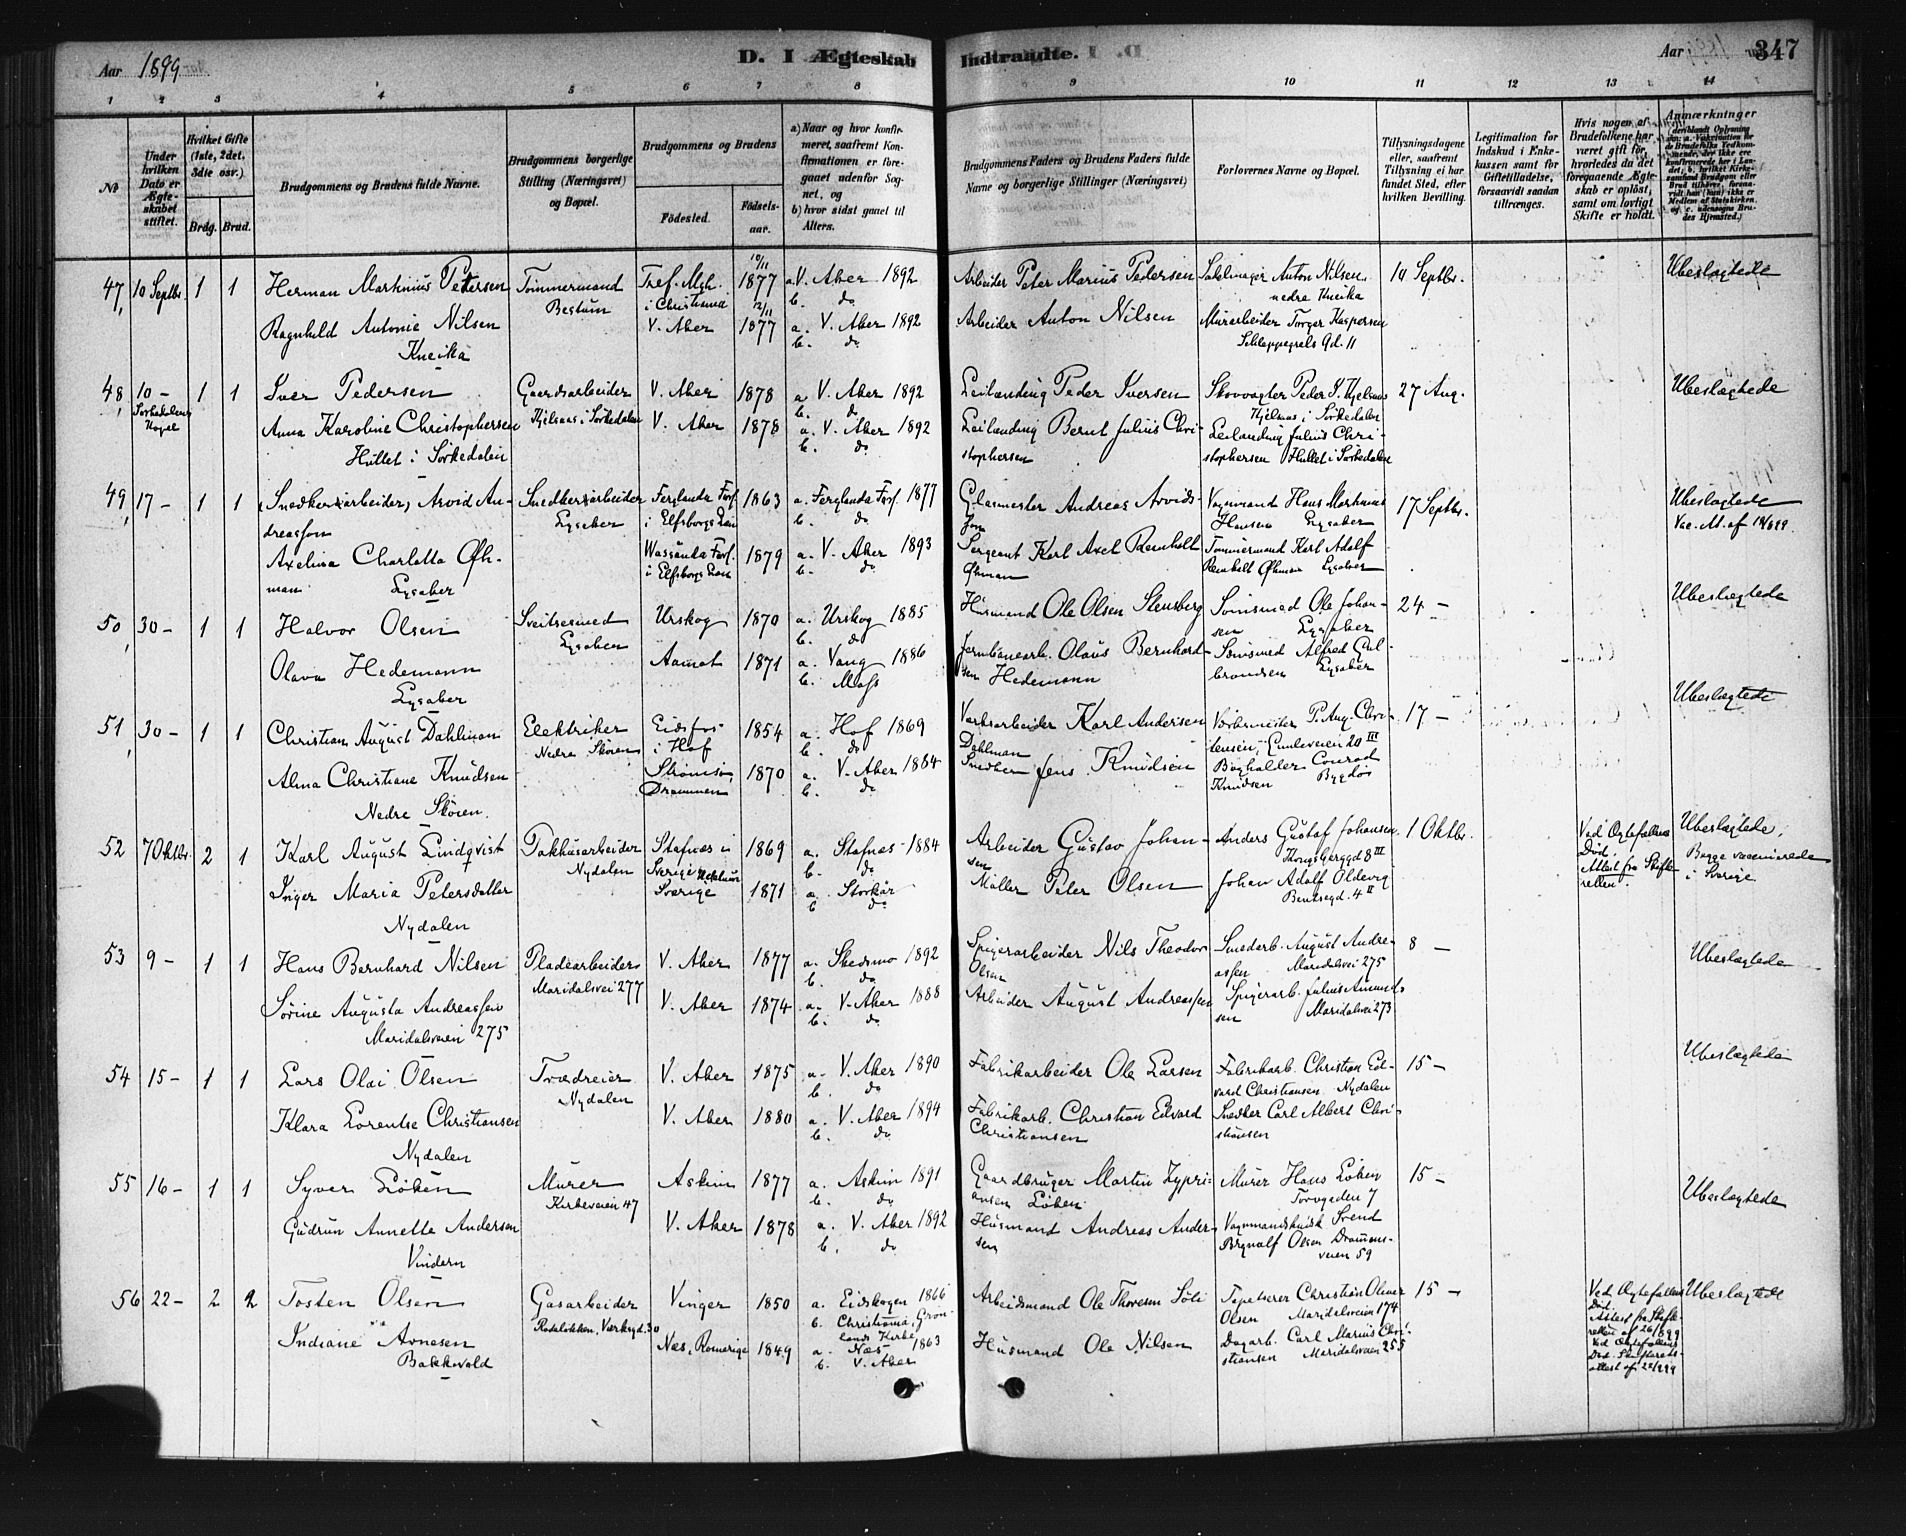 Aar 1899
D. I Ægteskab Indtraadte.
Aar
347
1 2 3 4 5 6 7 8 9 10 11 12 13 14
No
Under hvilken Dato er Ægteskabet stiftet.
Hvilket Gifte (1ste, 2det, 3die osv.)
Brdg. Brud.
Brudgommens og Brudens fulde Navne.
Brudgommens borgerlige Stilling (Næringsvei) og Bopæl.
Brudgommens og Brudens
Fødested.
Fødselsaar.
a) Naar og hvor konfirmeret, saafremt Konfirmationen er foregaaet udenfor Sognet, og
b) hvor sidst gaaet til Alters.
Brudgommens Faders og Brudens Faders fulde Navne og borgerlige Stillinger (Næringsvei)
Forlovernes Navne og Bopæl.
Tillysningsdagene eller, saafremt Tillysning ei har fundet Sted, efter hvilken Bevilling.
Legitimation for Indskud i Enkekassen samt for Giftetilladelse, forsaavidt saadan tiltrænges.
Hvis nogen af Brudefolkene har været gift før, hvorledes da det foregaaende Ægteskab er opløst, samt om lovligt Skifte er holdt.
Anmærkninger
47, 10 Septbr. 1 1 Herman Martinius Petersen Tømmermand Bestum
i Christiania 10/11 1877 a. V. Aker 1892 b. do
Arbeider Peter Marius Pedersen Anton Nilsen nedre Kneika 10 Septbr. Ubeslægtede
Ragnhild Antonie Nilsen Kneika V. Aker 12/11 1877 a. V. Aker 1892 b. do
Arbeider Anton Nilsen Murarbeider Torger Kaspersen Schleppegrels Gd. 11
48, 10 - Sørkedalens Kapel 1 1 Iver Pedersen Gaardsarbeider i Sørkedalen V. Aker 1878 a V. Aker 1892 b. do
Leilænding Peder Iversen Skovvogter Peder i Sørkedalen 27 Aug. Ubeslægtede
Anna Karoline Christophersen Hullet i Sørkedalen V. Aker 1878 a. V. Aker 1892 b. do
Leilænding Bernt Julius Christophersen Leilænding Julius Christophersen Hullet i Sørkedalen
49, 17 - 1 1 (Snedkerarbeider) Arvid Andreasson Snedkerarbeider Lysaker
Ferglanda Fors. i Elfsborgs Län 1863 a. Ferglanda Fors. 1877 b. do
Glasmester Andreas Arvidsson Vognmand Hans Martinius Hansen Lysaker 17 Septbr. Ubeslægtede
Axelina Charlotta Øhman Lysaker i Elfsborgs Län 1879 a. V. Aker 1893 b. do
Sergeant Karl Axel Reinholt Øhman Tømmermand Karl Adolf Reinholt Øhman Lysaker
50, 30 - 1 1 Halvor Olsen Lysaker Urskog 1870 a. Urskog 1885 b. do
Husmand Ole Olsen Stensberg Ole Johansen Lysaker 24 - Ubeslægtede
Olava Hedemann Lysaker Aamot 1871 a. Vang 1886 b. Moss
Jernbanearb. Olaus Bernhardsen Hedemann Alfred Gulbrandsen Lysaker
51, 30 - 1 1 Christian August Dahlman Elektriker Nedre Skøien Eidsfos i Hof 1854 a. Hof 1869 b. do
Verksarbeider Karl Andersen Dahlman P. Aug. 17 - Ubeslægtede
Alma Christiane Knudsen Nedre Skøien. Strømsø, Drammen 1870 a. V. Aker 1884 b. do
Snedker Jens Knudsen Boghalder Conrad Knudsen Bygdø
52 7 Oktbr. 2 1 Karl August Lindqvist Pakhusarbeider Nydalen Stafnäs i Sverige 1869 a. Stafnäs 1884 b. do
Arbeider Gustav Johansen Anders Gustaf Johansen. 8 III 1 Oktbr.
Ved Ægtefællens Død. Attest fra Skifteretten. Ubeslægtede. Begge i Sverige
Inger Maria Petersdatter Nydalen Sverige 1871 a. b do
Møller Peter Olsen Johan Adolf Bentsegd. 4 II
53 9 - 1 1 Hans Bernhard Nilsen Pladearbeider Maridalsvei 277 V. Aker 1877 a. Skedsmo 1892 b. do
Spigerarbeider Nils Theodor Olsen Smedarb. August Andreassen Maridalsvei 275 8 - Ubeslægtede
Sørine Augusta Andreassen Maridalsveien 275 V. Aker 1874 a. V. Aker 1888 b. do
Arbeider August Andreassen Spigerarb. Julius Amundsen Maridalsvei 273
54 15 - 1 1 Lars Olai Olsen Trædreier Nydalen V. Aker 1875 a. V. Aker 1890 b. do
Fabrikarbeider Ole Larsen Fabrikarb. Christian Edvard Christiansen Nydalen 15 - Ubeslægtede
Klara Lorentse Christiansen Nydalen V. Aker 1880 a. V. Aker 1894 b. do
Fabrikarb. Christian Edvard Christiansen Snedker Carl Albert Christiansen
55 16 - 1 1 Syver Løken Murer Kirkeveien 47 Askim 1877 a. Askim 1891 b. do
Gaardbruger Martin Zypriansen Løken Murer Hans Løken Torvgaden 7 15 - Ubeslægtede
Gudrun Annette Andersen Vindern V. Aker 1878 a. V. Aker 1892 b. do
Husmand Andreas Andersen Svend Brynolf Olsen Drammensveien 59
56 22 - 2 2 Tosten Olsen Gasarbeider Rodeløkken, Værksgd. 30 Vinger 1850 a. Eidskogen 1866 b. Christiania, Grønlands Kirke
Arbeidsmand Ole Thoresen Tapetserer Christian Oliver Olsen Maridalsveien 174 15 -
Ved Ægtefællens Død. Attest fra Skifteretten af 26/8 99 Ubeslægtede
Indiane Arnesen Bakkevold Næs, Romerige 1849 a. Næs 1863 b. V. Aker
Husmand Ole Nilsen Dagarb. Carl Marius Christiansen Maridalsveien 255
Ved Ægtefællens Død. Skifterets-attest af 22/9 99